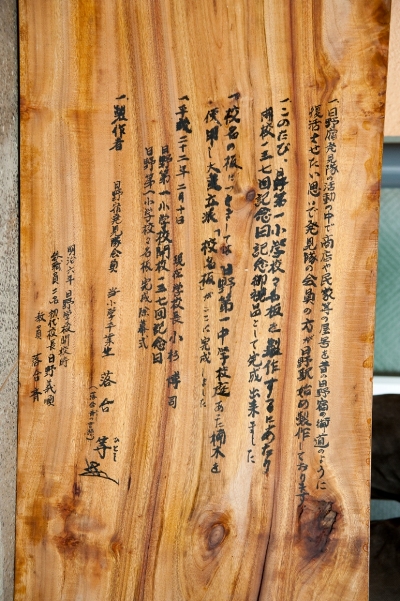 一、日野宿発見隊の活動の中で商店や民家等の屋号を昔の日野宿の街道のように
復活させたい思いで発見隊の会員の方が日野駅始め製作しております
一、このたび、日野第一小学校々名板を製作するにあたり
開校一三七回記念日記念御祝品として完成出来ました
一、校名の板につきましては日野第一中学校庭にあった楠木を
使用し大変立派な「校名板」がここに完成しました
一、平成二十二年二月十日 現在学校長 小杉博司
日野第一小学校開校一三七回記念日
日野第一小学校々名板完成除幕式
一、製作者 日野宿発見隊会員 当小学卒業生 落合 等
ひとし
明治六年 日野学校開校時
教職員三名 初代校長 日野義順
教員 落合